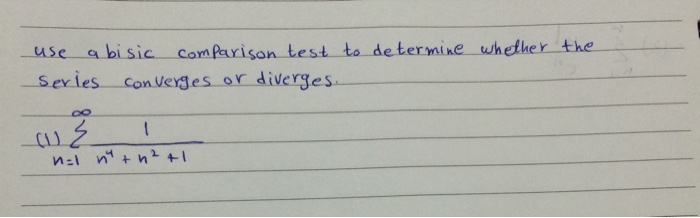 use a bisic comparison test to determine whether the
series converges or diverges.
(1) ∞ Σ n=1 1 / n⁴ + n² + 1